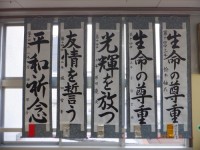 生命の尊重
生命の尊重
光輝を放つ
友情を誓う
平和祈念